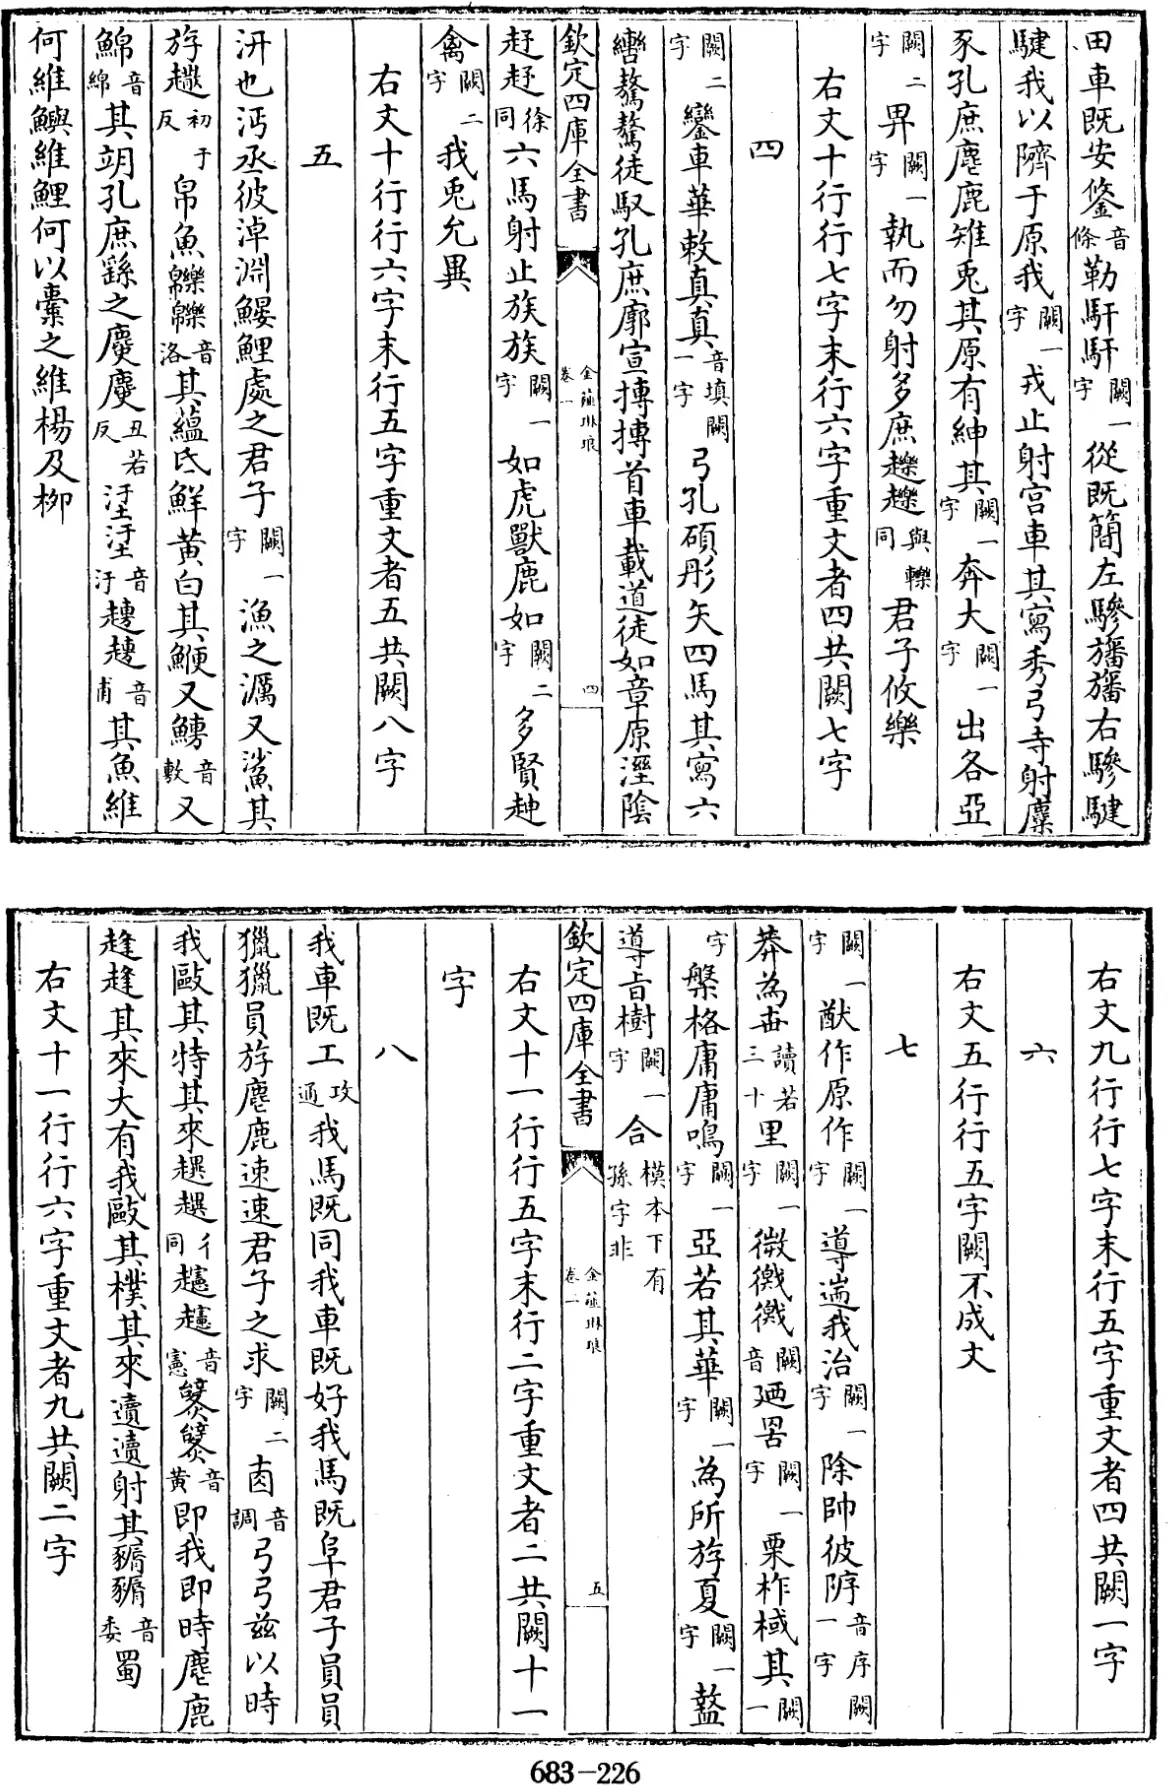 田車既安鋚音鋚條勒馯馯闕一字從既簡左驂旛旛右驂騝
騝我以隮于原我闕一字戎止射宫車其寫秀弓寺射麋
豕孔庶麀鹿雉兎其原有紳其闕一字奔大闕一字出各亞
闕二字昇闕一字執而勿射多庶趮趮與轢同君子攸樂
右文十行行七字末行六字重文者四共闕七字
四
闕二字鑾車華敕真真音填闕一字弓孔碩彤矢四馬其寫六
轡驁驁徒馭孔庶廓宣搏搏首車載道徒如章原溼陰
欽定四庫全書
金薤琳琅
卷一
四
趍趍徐同六馬射止族族闕一字如虎獸鹿如闕二字多賢
禽闕二字我兎允異
右文十行行六字末行五字重文者五共闕八字
五
汧也沔丞彼淖淵鰋鯉處之君子闕一字漁之濿又鯊其
斿趲初于反帛魚音洛其蘊氐鮮黄白其鯾又音敷又
鯞音綿其朔孔庶䜌之麌麌丑若反汗汗音汙趠趠音甫其魚維
何維鱮維鯉何以橐之維楊及柳
右文九行行七字末行五字重文者四共闕一字
六
右文五行行五字闕不成文
七
闕一字猷作原作闕一字導遄我治闕一字除帥彼阝音序闕一字
莽為丗讀若三十里闕一字微𢕄𢕄闕音廼罟闕一字栗柞棫其闕一
字槃格庸庸鳴闕一字亞若其華闕一字為所斿夏闕一字盩
導旨樹闕一字合模本下有孫字非
欽定四庫全書
金薤琳琅
卷一
五
右文十一行行五字末行二字重文者二共闕十一
字
八
我車既工攻通我馬既同我車既好我馬既阜君子員員
獵獵員斿麀鹿速速君子之求闕二字卣音調弓弓兹以時
我敺其特其來趩趩彳同趯趯音憲音黄即我即時麀鹿
趍趍其來大有我敺其樸其來遺遺射其豣豣音委蜀
右文十一行行六字重文者九共闕二字
683-226